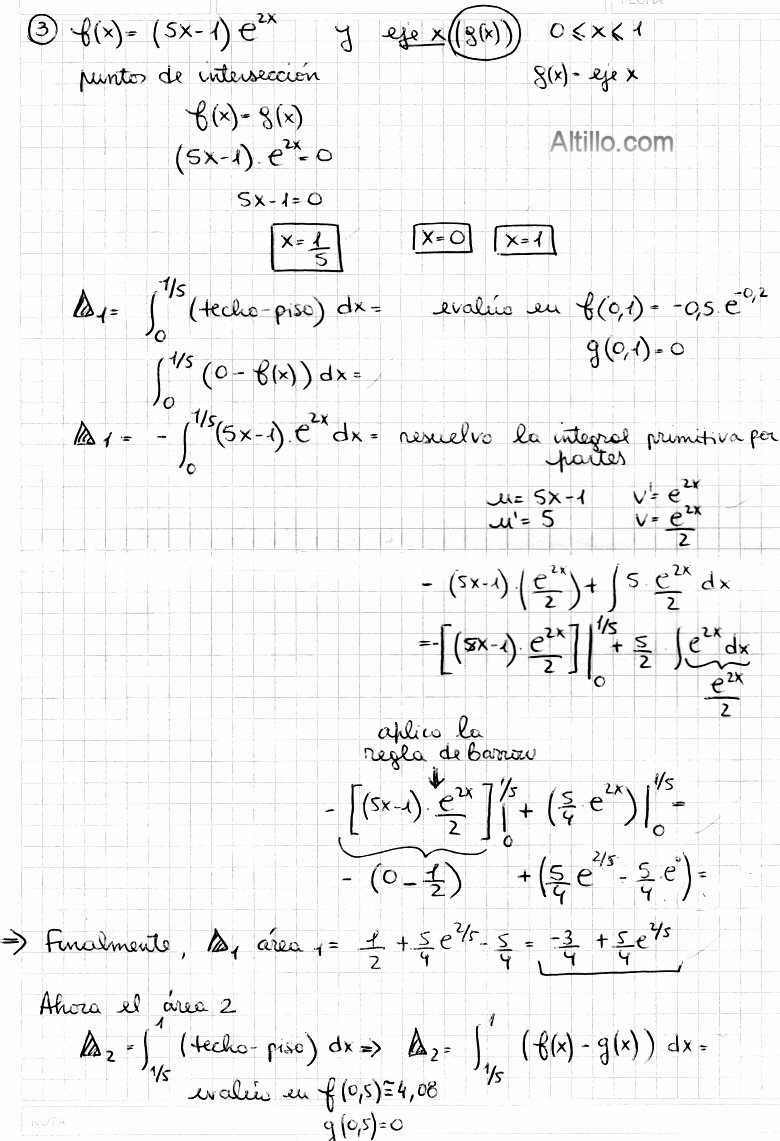 ③ f(x) = (5x-1) e^{2x} y eje x (g(x)) 0 ⩽ x ⩽ 1
puntos de intersección g(x) = eje x
f(x) = g(x)
Altillo.com
(5x-1) . e^{2x} = 0
5x-1 = 0
x = 1/5 x=0 x=1
△₁ = ∫_0^{1/5} (techo-piso) dx = evalúo en f(0,1) = -0,5 . e^{-0,2}
g(0,1) = 0
∫_0^{1/5} (0 - f(x)) dx =
△₁ = - ∫_0^{1/5} (5x-1) . e^{2x} dx = resuelvo la integral primitiva por
partes
u = 5x-1 v' = e^{2x}
u' = 5 v = e^{2x}/2
- (5x-1) . (e^{2x}/2) + ∫ 5 . e^{2x}/2 dx
= -[(5x-1) . e^{2x}/2] |_0^{1/5} + 5/2 . ∫ e^{2x} dx
e^{2x}/2
aplico la
regla de barrow
- [(5x-1) . e^{2x}/2] |_0^{1/5} + (5/4 e^{2x}) |_0^{1/5} =
- (0 - 1/2) + (5/4 e^{2/5} - 5/4 . e^0) =
⇒ Finalmente, △₁ área ₁ = 1/2 + 5/4 e^{2/5} - 5/4 = -3/4 + 5/4 e^{2/5}
Ahora el área 2
△₂ = ∫_{1/5}^1 (techo-piso) dx ⇒ △₂ = ∫_{1/5}^1 (f(x) - g(x)) dx =
evalúo en f(0,5) ≅ 4,08
g(0,5) = 0